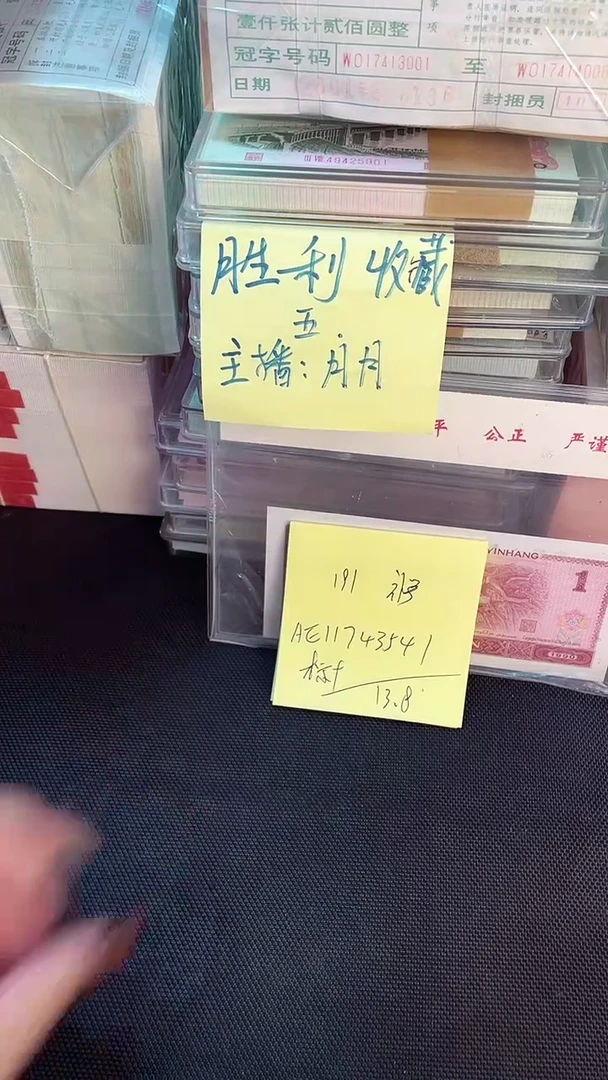 壹仟张计贰佰圆整
事
项
冠字号码 W017413001 至 W01741400
日期
封捆员
冠字号码
49425901
胜利 收藏
五.
主播: 月月
平 公正 严谨
YINHANG
1
1990
191
AE11743541
标十
13.8